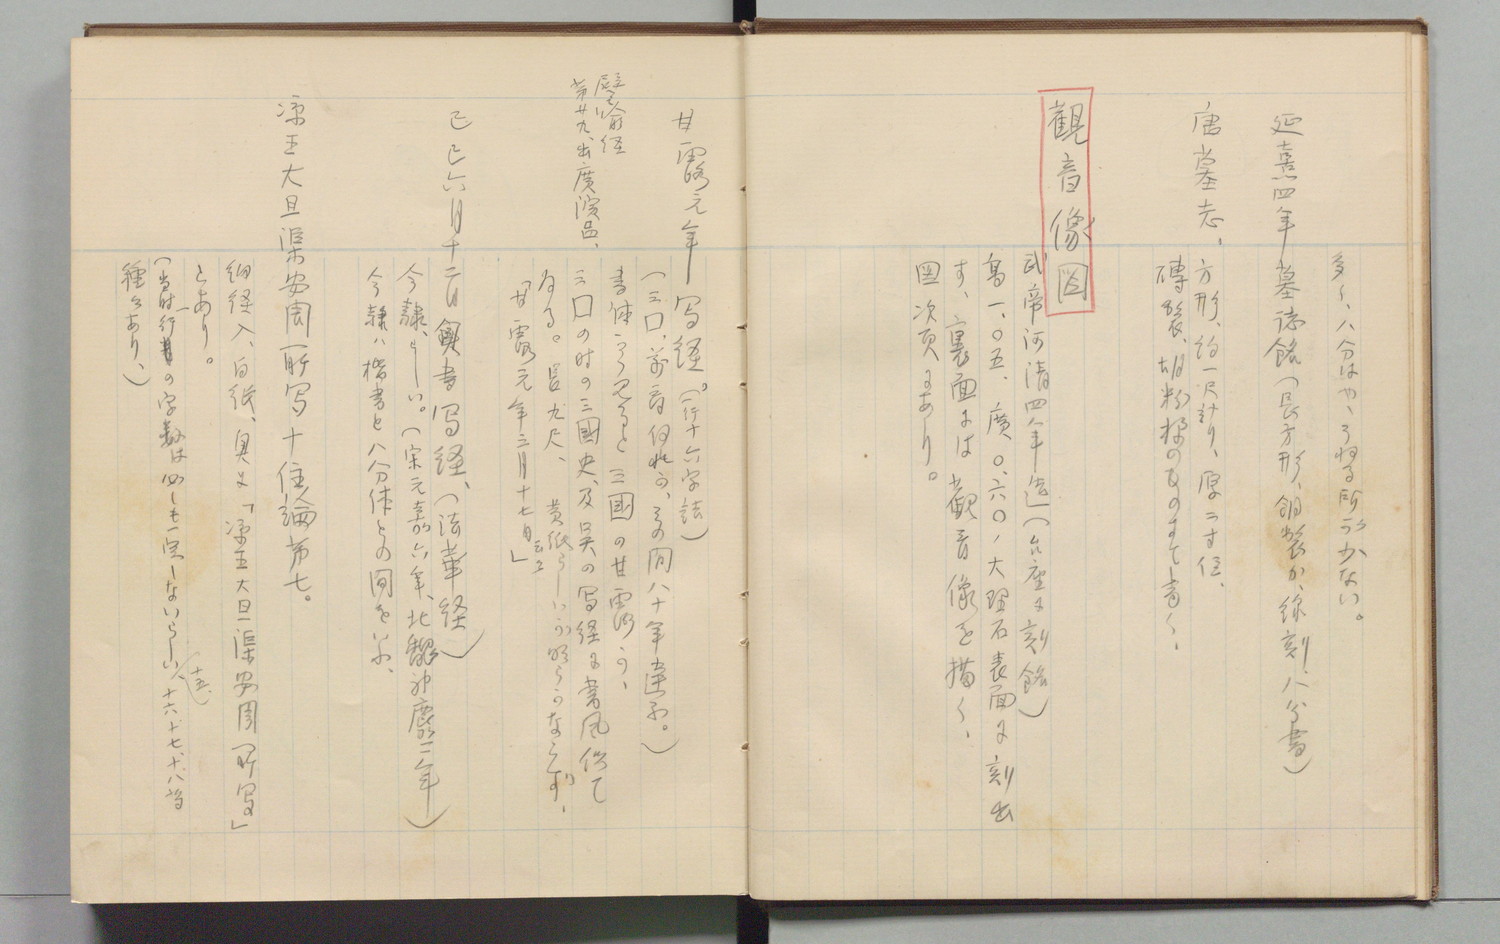 多く、八分はやゝうねる所が少ない。
延熹四年墓誌銘(長方形、銅製か、線刻、八分書)
唐墓志、方形、約一尺計り、厚二寸位、
磚製、胡粉様のものすて書く、
觀音像図
武帝河清四年造(台座に刻銘)
高一、〇五、廣、〇、六〇、大理石表面に刻出
す、裏面には觀音像を描く、
図次頁にあり。
甘露元年写経。(一行十六字詰)
譬喩経
第廿九、出廣演品、
(三口、前 何れか、その間八十年違ふ。)
書体から見ると三國の甘露か、
三口の時の三國史、及呉の写経に書風似て
ゐる。長九尺、黄紙らしいが明らかならず、
「甘露元年三月十七日」云々
己巳六月十二日奥書写経、(法華経)
今隸、らしい。(宋元嘉六年、北魏神䴥二年)
今隸ハ楷書と八分体との間を以ふ、
凉王大且渠安周所写十住論第七。
細経入、白紙、奥文「凉王大且渠安周所写」
とあり。
(当時一行の字数は必しも一定しないらしい、十五、十六、十七、十八等
種々あり、)